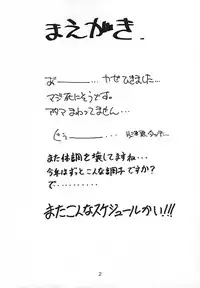 まえがき.
お゛ー――――… かぜひきました…
マジ死にそうです。
アタマ まわってません…
また体調を壊してますね…
今年はずっとこんな調子ですか?
で…………
またこんなスケジュールかい!!!
2